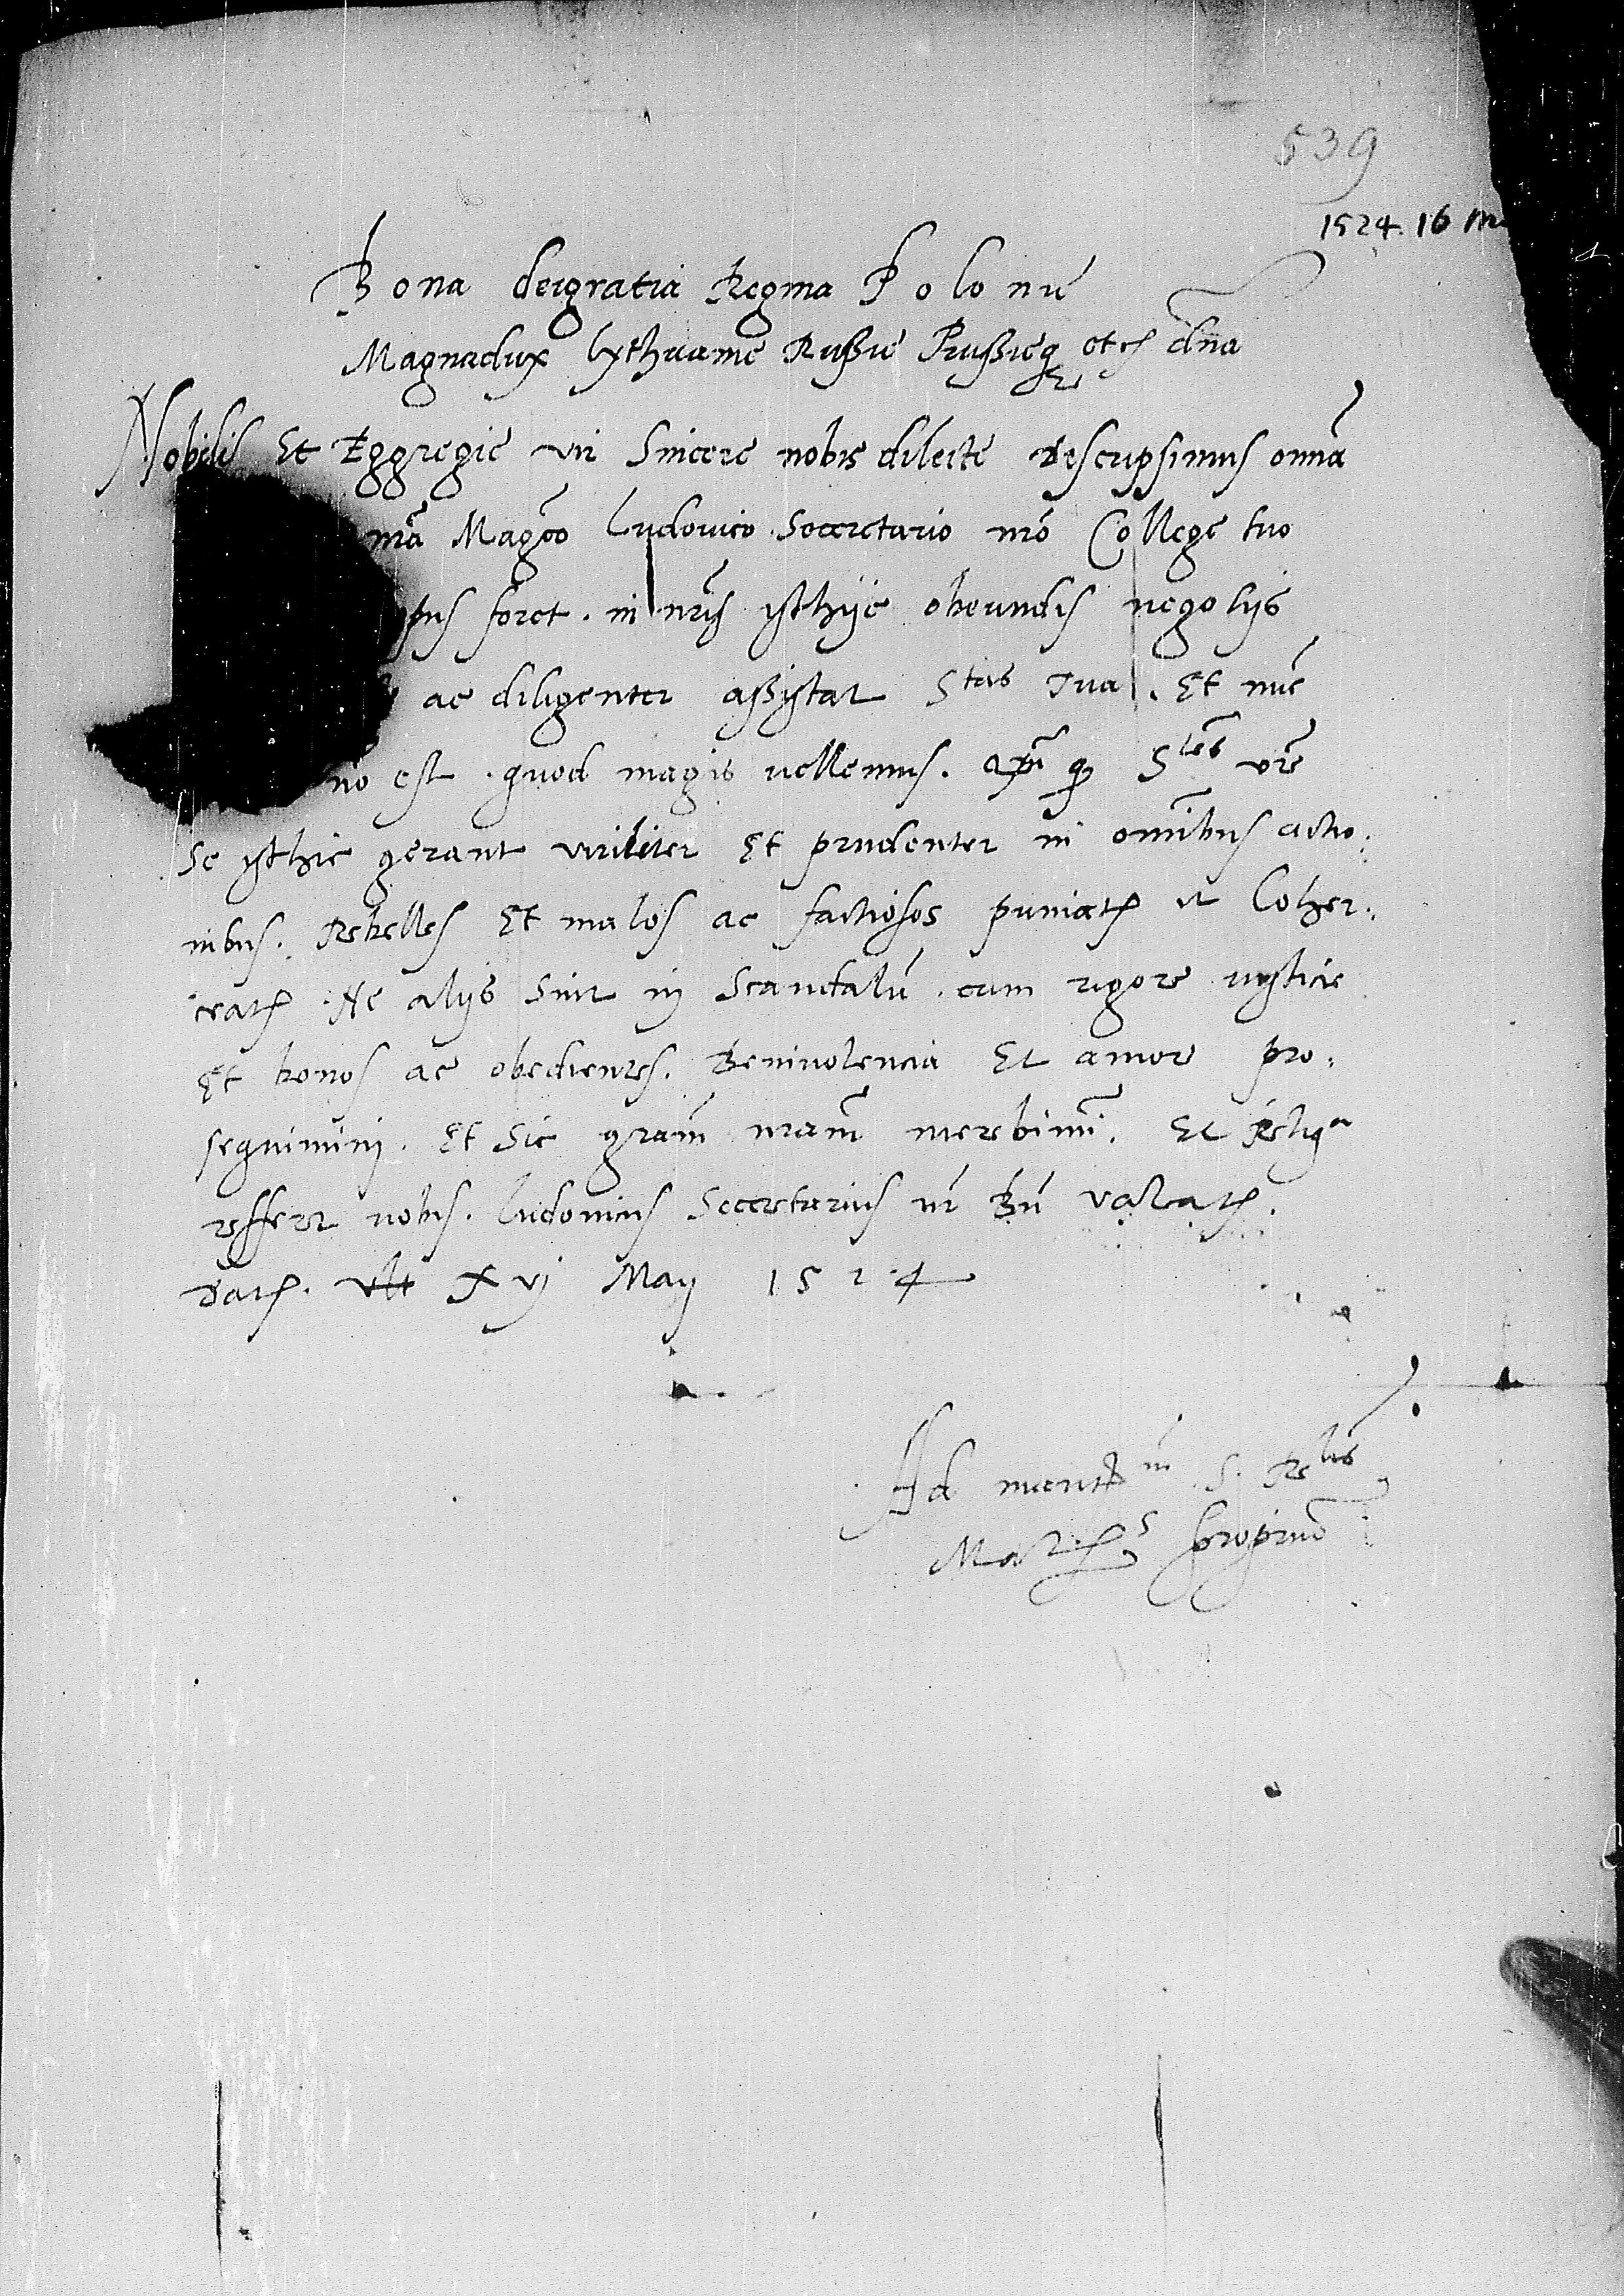 539
1524. 16 M
Bona dei gratia Regina Polonie
Magnadux lythuanie Russie Prussieq etc dna
Nobilis Et Eggregie vir Sincere nobis dilecte rescripsimus omnia
Magco ludouico Secretario nro College tuo
foret. in nris isthije obeundis negotijs
ac diligenter assistat Stas Tua. Et nunc
est. quod magis vellemus. Stes vre
Se isthic gerant viriliter Et prudenter in omnibus actio:
nibus. Rebelles Et malos ac factiosos puniatis et Coher:
ceatis. Ne alijs sint in Scandalū. cum rigore iustitie
Et bonos ac obedientes. Beniuolencia Et amore pro:
sequimini. Et Sic gram nram merebimi. Et reliqa
refferet nobis. ludouicus Secretarius nr Bn valeatis.
Datis. Xvj May 1524
Ad mandtm S. Rlis
Matis proprium